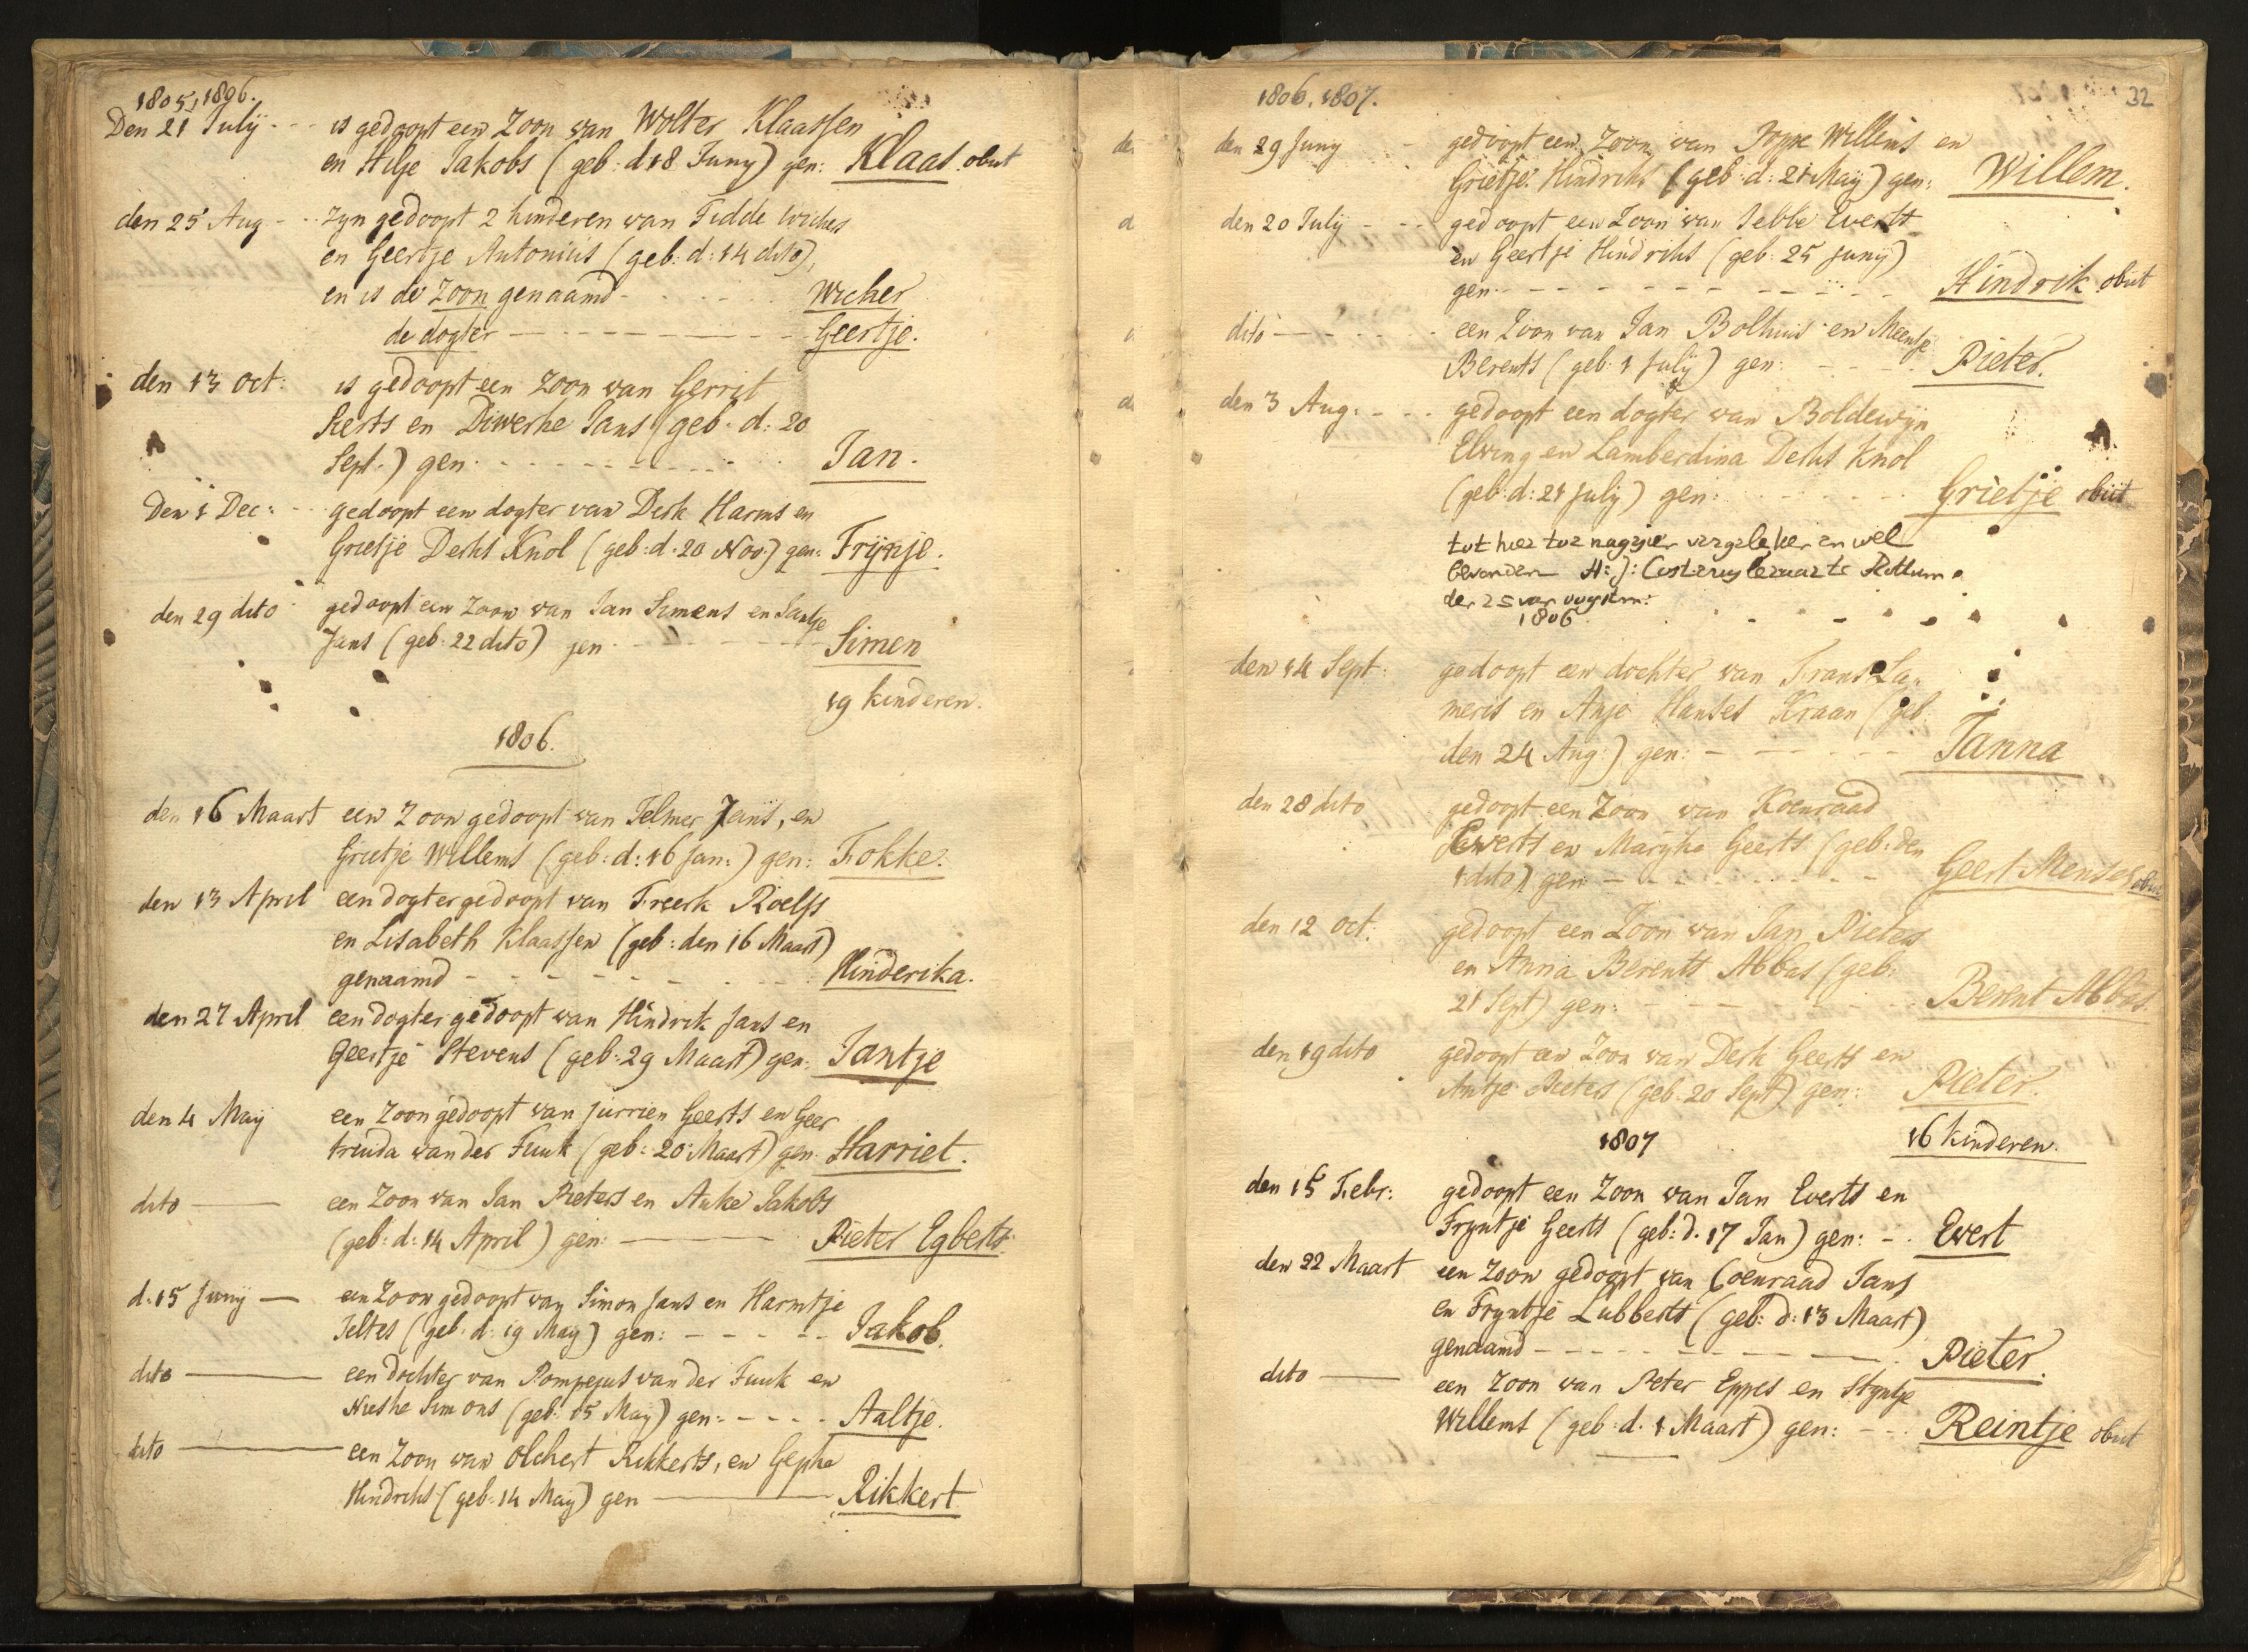 1805, 1806.
Den 21 July - - - is gedoopt een Zoon van Wolter Klaassen
en Hilje Jakobs (geb: d 18 Juny) gen: Klaas. obiit
den 25 Aug - - - zyn gedoopt 2 kinderen van Fidde Wichers
en Geertje Antonius (geb: d: 14 dito),
en is de Zoon genaamd - - - - - Wicher
de dogter - - - - - - - - Geertje.
den 13 Oct: is gedoopt een Zoon van Gerrit
en Diwerke Jans (geb. d: 20
Sept.) gen. - - - - - - - - - Jan.
Den 1 Dec: - - gedoopt een dogter van Derk Harms en
Grietje Derks Knol (geb: d. 20 Nov.) gen: Trijnje.
den 29 dito gedoopt een Zoon van Jan Simens en
Jans (geb: 22 dito) gen - - - - - - Simen
19 kinderen.
1806.
den 16 Maart een Zoon gedoopt van Jelmer, en
Grietje Willems (geb: d: 16 Jan:) gen: Fokke.
den 13 April een dogter gedoopt van Freerk Roelfs
en Lisabeth Klaassen (geb: den 16 Maart)
genaamd - - - - - - - - Hinderika.
den 27 April een dogter gedoopt van Hindrik Jans en
Geertje Stevens (geb: 29 Maart) gen: Jantje
den 4 May een Zoon gedoopt van Jurrien Geerts en Geer
truida van der Tuuk (geb: 20 Maart) gen. Harriet.
dito een Zoon van Jan Pieters en Anke Jakobs
(geb: d: 14 April) gen: Pieter Egberts
d. 15 Juny een Zoon gedoopt van Simon Jans en Harmtje
Jeltes (geb: d: 19 May) gen: - - - - - Jakob.
dito een dochter van Pompejus van der Tuuk en
Nieske Simons (geb: 15 May) gen: - - - - Aaltje.
dito een Zoon van Olchert Rikkerts, en Gepke
Hindriks (geb: 14 May) gen Rikkert
1806, 1807. 32
den 29 Juny - gedoopt een Zoon van Poppe Willems en
Grietje Hindriks (geb: d: 21 May) gen: Willem.
den 20 July - - - gedoopt een Zoon van Jebbe Everts
en Geertje Hindriks (geb: 25 Juny)
gen - - - - - - - - - - Hindrik obiit
dito een Zoon van Jan Bolhuis en Meentje
Berents (geb: 1 July) gen: - - - - Pieter.
den 3 Aug: - - - gedoopt een dogter van Boldewyn
Elving en Lamberdina Derks Knol
(geb: d: 21 July) gen: - - - - - Grietje obiit
tot hier toe nagezien vergeleken en wel
bevonden H: J: te Rottum
den 25 van
1806
den 14 Sept: gedoopt een dochter van Frans La-
meris en Anje Hanses Kraan (geb:
den 24 Aug:) gen: - - - - - Janna
den 28 dito gedoopt een Zoon van Koenraad
Everts en Maryke Geerts (geb: den
1 dito) gen - - - - - - - Geert Menses obiit
den 12 Oct: gedoopt een Zoon van Jan Pieters
en Anna Berents Abbas (geb:
21 Sept) gen: - - - - - - Berent Abbas.
den 19 dito gedoopt een Zoon van Derk Geerts en
Antje Pieters (geb. 20 Sept) gen: Pieter.
1807 16 kinderen.
den 15 Febr: gedoopt een Zoon van Jan Everts en
Fryntje Geerts (geb: d. 17 Jan) gen: - - Evert
den 22 Maart een Zoon gedoopt van Coenraad Jans
en Fryntje Lubberts (geb: d: 13 Maart)
genaamd - - - - - - - - - Pieter.
dito een Zoon van Peter Eppes en Styntje
Willems (geb: d. 1 Maart) gen: - - - Reintje obiit